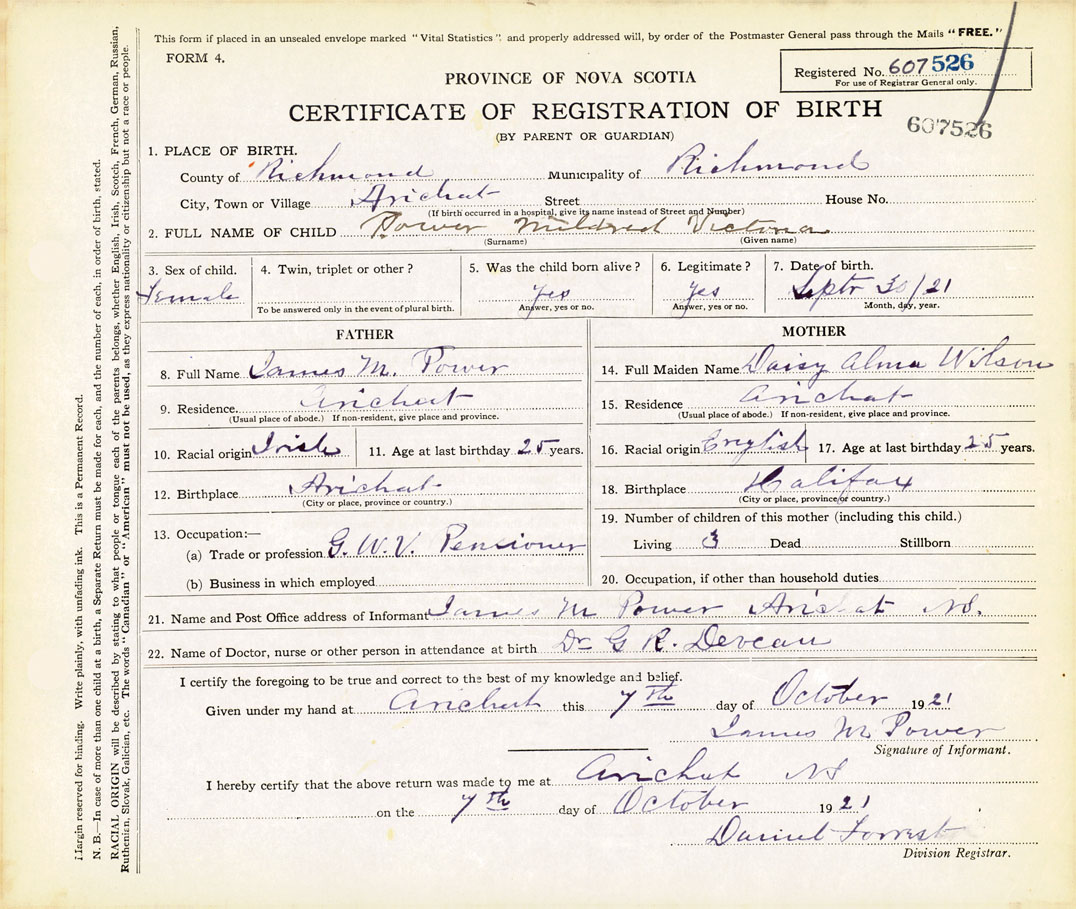 This form if placed in an unsealed envelope marked "Vital Statistics" and properly addressed will, by order of the Postmaster General pass through the Mails "FREE."
FORM 4.
Registered No. 607526
For use of Registrar General only.
PROVINCE OF NOVA SCOTIA
CERTIFICATE OF REGISTRATION OF BIRTH
607526
(BY PARENT OR GUARDIAN)
1. PLACE OF BIRTH.
County of Richmond Municipality of Richmond
City, Town or Village Arichat Street House No.
(If birth occurred in a hospital, give its name instead of Street and Number)
2. FULL NAME OF CHILD Power Mildred Victoria
(Surname) (Given name)
3. Sex of child. 4. Twin, triplet or other? 5. Was the child born alive? 6. Legitimate? 7. Date of birth.
Female Yes Yes Septr 30/21
To be answered only in the event of plural birth. Answer, yes or no. Answer, yes or no. Month, day, year.
FATHER
8. Full Name James M. Power
9. Residence. Arichat
(Usual place of abode.) If non-resident, give place and province.
10. Racial origin Irish 11. Age at last birthday 25 years.
12. Birthplace Arichat
(City or place, province or country.)
13. Occupation:—
(a) Trade or profession G. W. V. Pensioner
(b) Business in which employed
MOTHER
14. Full Maiden Name Daisy Alma Wilson
15. Residence Arichat
(Usual place of abode.) If non-resident, give place and province.
16. Racial origin English 17. Age at last birthday 25 years.
18. Birthplace Halifax
(City or place, province or country.)
19. Number of children of this mother (including this child.)
Living 3 Dead Stillborn
20. Occupation, if other than household duties
21. Name and Post Office address of Informant James M Power Arichat NS.
22. Name of Doctor, nurse or other person in attendance at birth Dr G R. Deveau
I certify the foregoing to be true and correct to the best of my knowledge and belief.
Given under my hand at Arichat this 7th day of October 1921
James M Power
Signature of Informant.
I hereby certify that the above return was made to me at Arichat NS
on the 7th day of October 1921
Daniel Forrest
Division Registrar.
Margin reserved for binding. Write plainly, with unfading ink. This is a Permanent Record.
N. B.—In case of more than one child at a birth, a Separate Return must be made for each, and the number of each, in order of birth, stated.
RACIAL ORIGIN will be described by stating to what people or tongue each of the parents belongs, whether English, Irish, Scotch, French, German, Russian,
Ruthenian, Slovak, Galician, etc. The words "Canadian" or "American" must not be used, as they express nationality or citizenship but not a race or people.